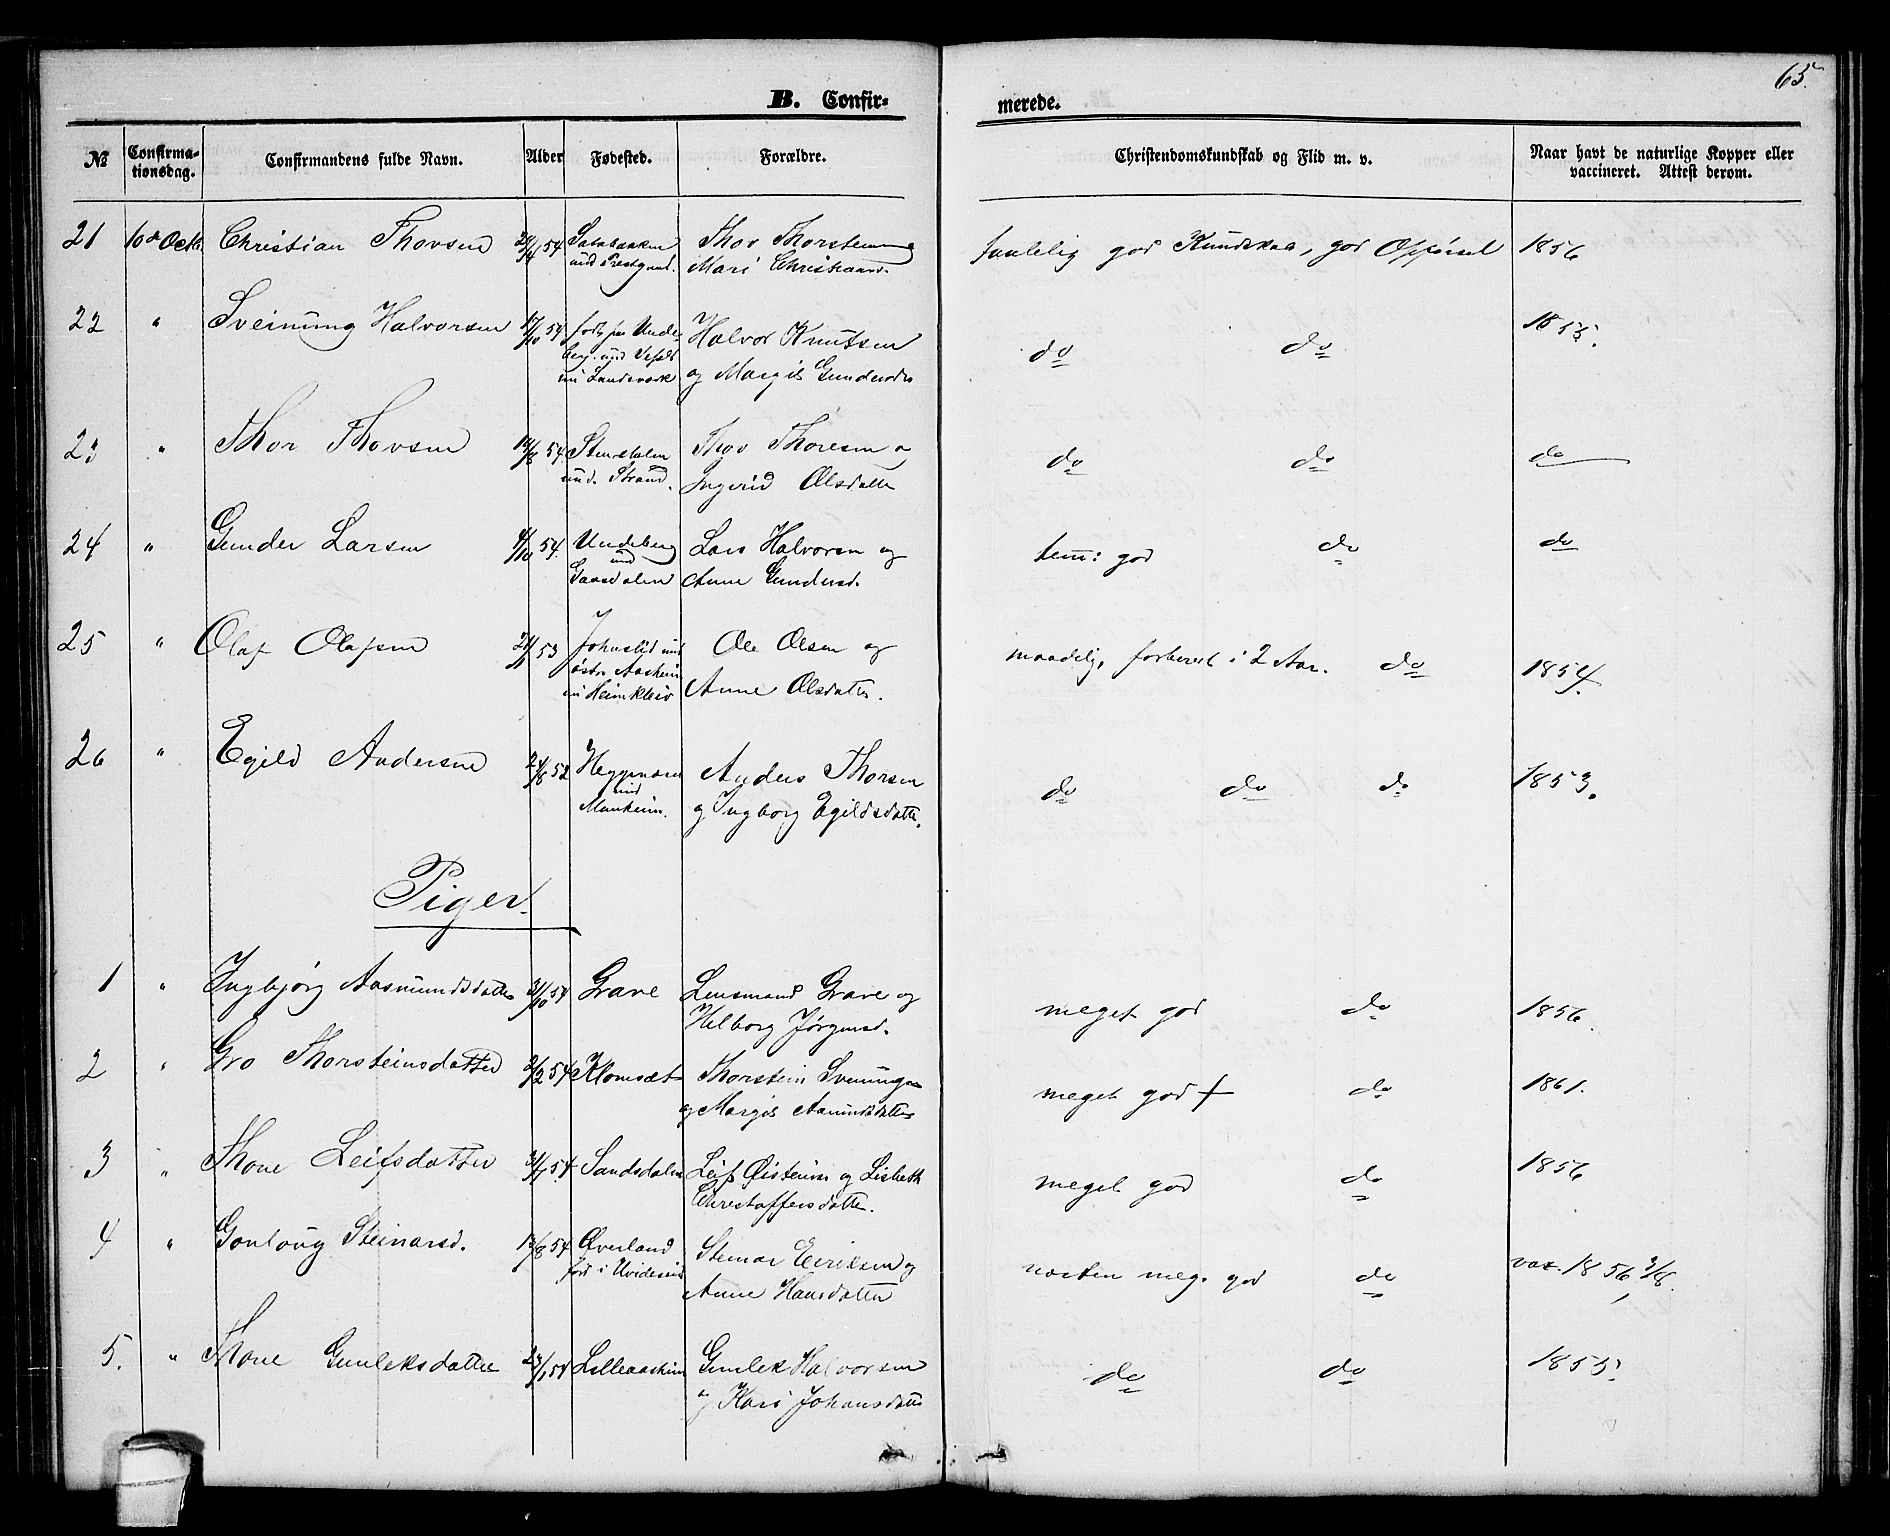 65.
B. Confir- merede.
№ Confirma-tionsdag. Confirmandens fulde Navn. Alder Fødested. Forældre. Christendomskundskab og Flid m. v. Naar havt de naturlige Kopper eller vaccineret. Attest derom.
21 Christian Thovsen 54 Thov Thorstensen
Mari Christiansd. god Kundskab, god Opførsel 1856
22 " Sveinung Halvorsen 17/10 54 Halvor Knutsen
og Margit Gundersdr do do 1855.
23 " Thor Thovsen 19/8 54. Stensdalen
und. Strand. Thov Thoresen og
Ingerid Olsdatter do do do
24 " Gunder Larsen 4/10 54. Undeberg
und
Gaasdalen Lars Halvorsen og
Anne Gundersd. tem: god do do
25 " Olaf Olafsen 53 Ole Olsen og
Anne Olsdatter. maadelig, forberedt i 2 Aar. do 1854.
26 " Egild Andersen 24/8 52 Heggenaasen
und
Manheim. Anders Thorsen
og Ingborg Egildsdatter. do do do 1853.
Piger.
1 " Ingbjørg Aasmundsdatter 31/10 54 Grave Lensmand Grave og
Helborg Jørgensd. meget god do 1856.
2 " Gro Thorsteinsdatter 2/2 54 Klomset Thorstein Sveinungsen
og Margit Aamundsdatter meget god + do 1861.
3 " Thone Leifsdatter 54 Sandsdalen Leif Øisteins og Lisbeth
Christoffersdatter. meget god do 1856
4 " Gonloug Steinarsd. 13/8 54 Øverland
født i Hvideseid Steinar Eeriksen og
Anne Hansdatter næsten meg. god do vax. 1856, 3/8.
5. " Thone Gunleksdatter 54 Lilleaasheim Gunlek Halvorsen
og Kari Johansdatter do do 1855.